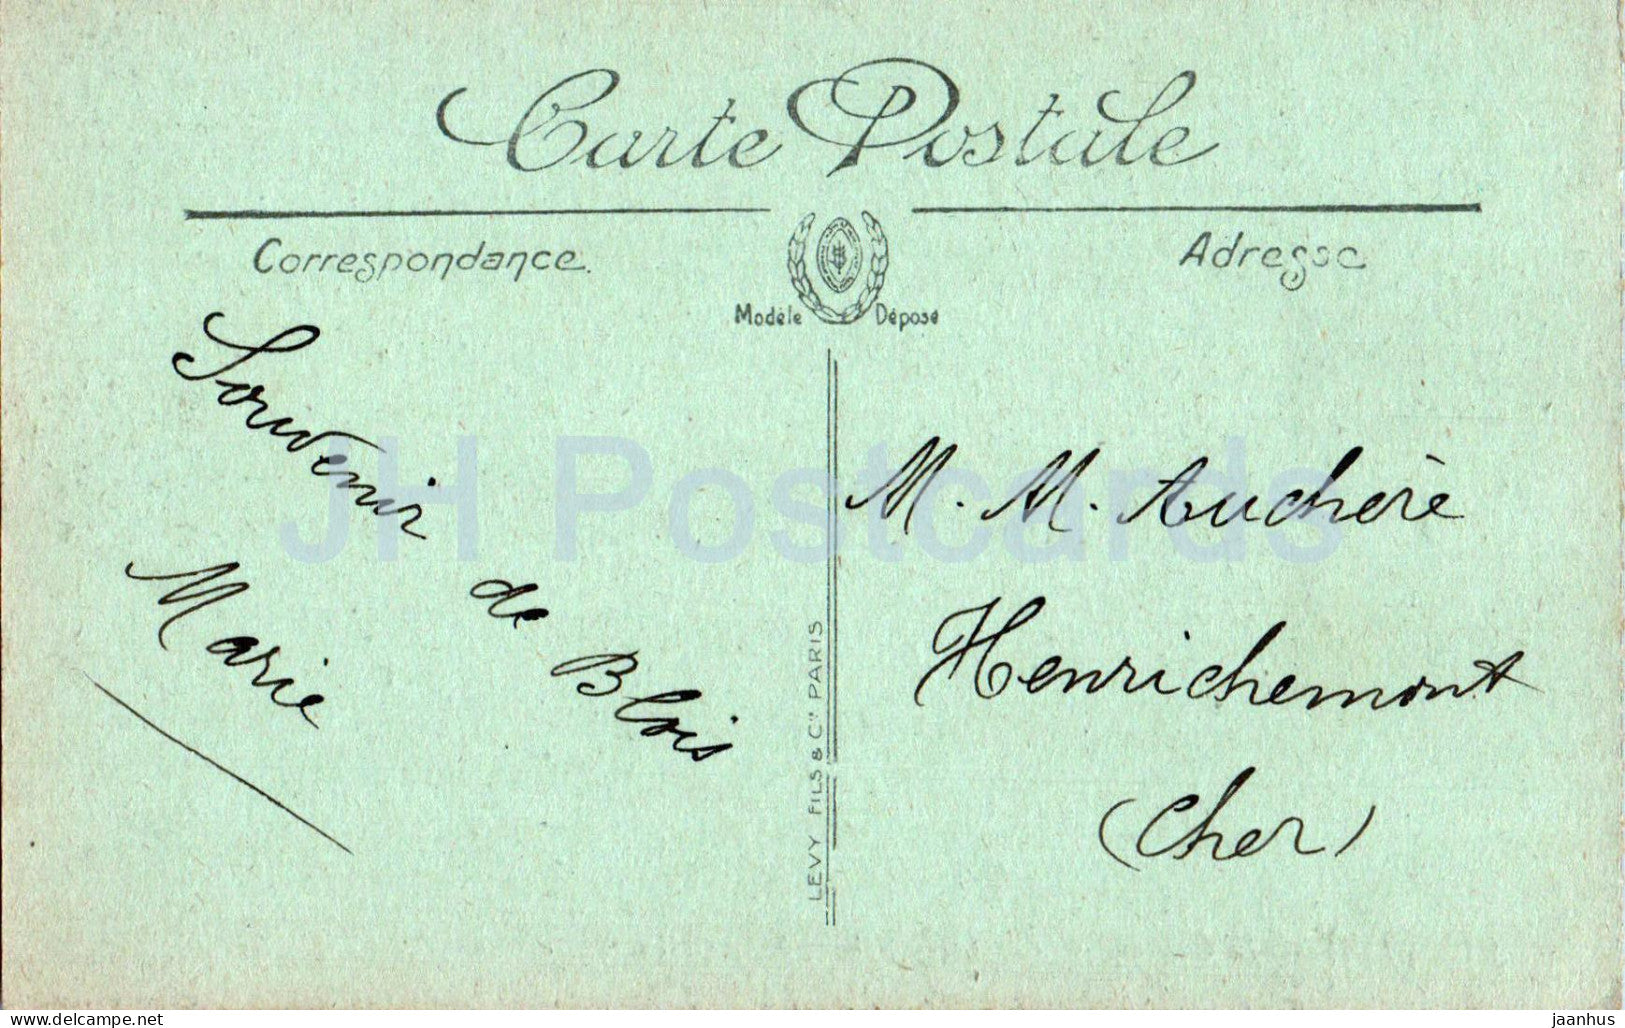 Carte Postale
Correspondance.
Adresse
Modèle Déposé
Souvenir de Blois
Marie
LEVY FILS & Cie PARIS
M. M. Auchère
Henrichemont
(Cher)
JH Postcards
jaanhus.delcampe.net
jaanhus